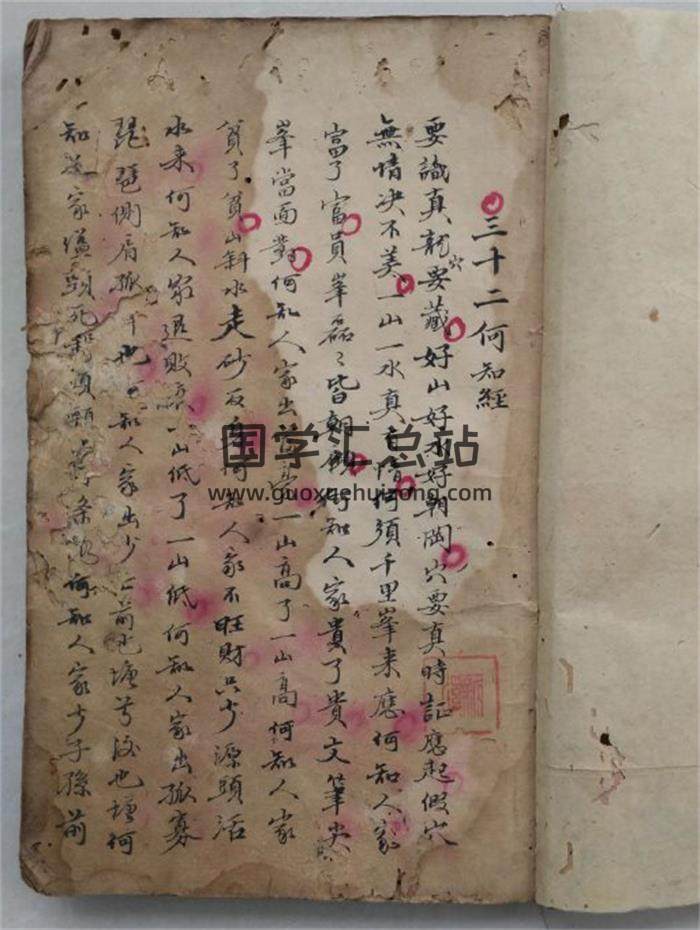 三十二何知經
要識真龍要藏穴好山好水好朝岡穴要真時証應起假穴
無情决不美一山一水真有情何須千里峯来應何知人家
富了富員峯磊〻皆朝何知人家貴了貴文筆尖
峯當面對何知人家出一山高了一山高何知人家
貧了貧山斜水走砂反何知人家不旺財只少源頭活
水来何知人家退敗一山低了一山低何知人家出孤寡
琵琶側肩孤也何知人家出少亡前也塘兮後也塘何
知人家縊頸死頸有條何知人家少子孫前
国学汇总站
www.guoxuehuizong.com